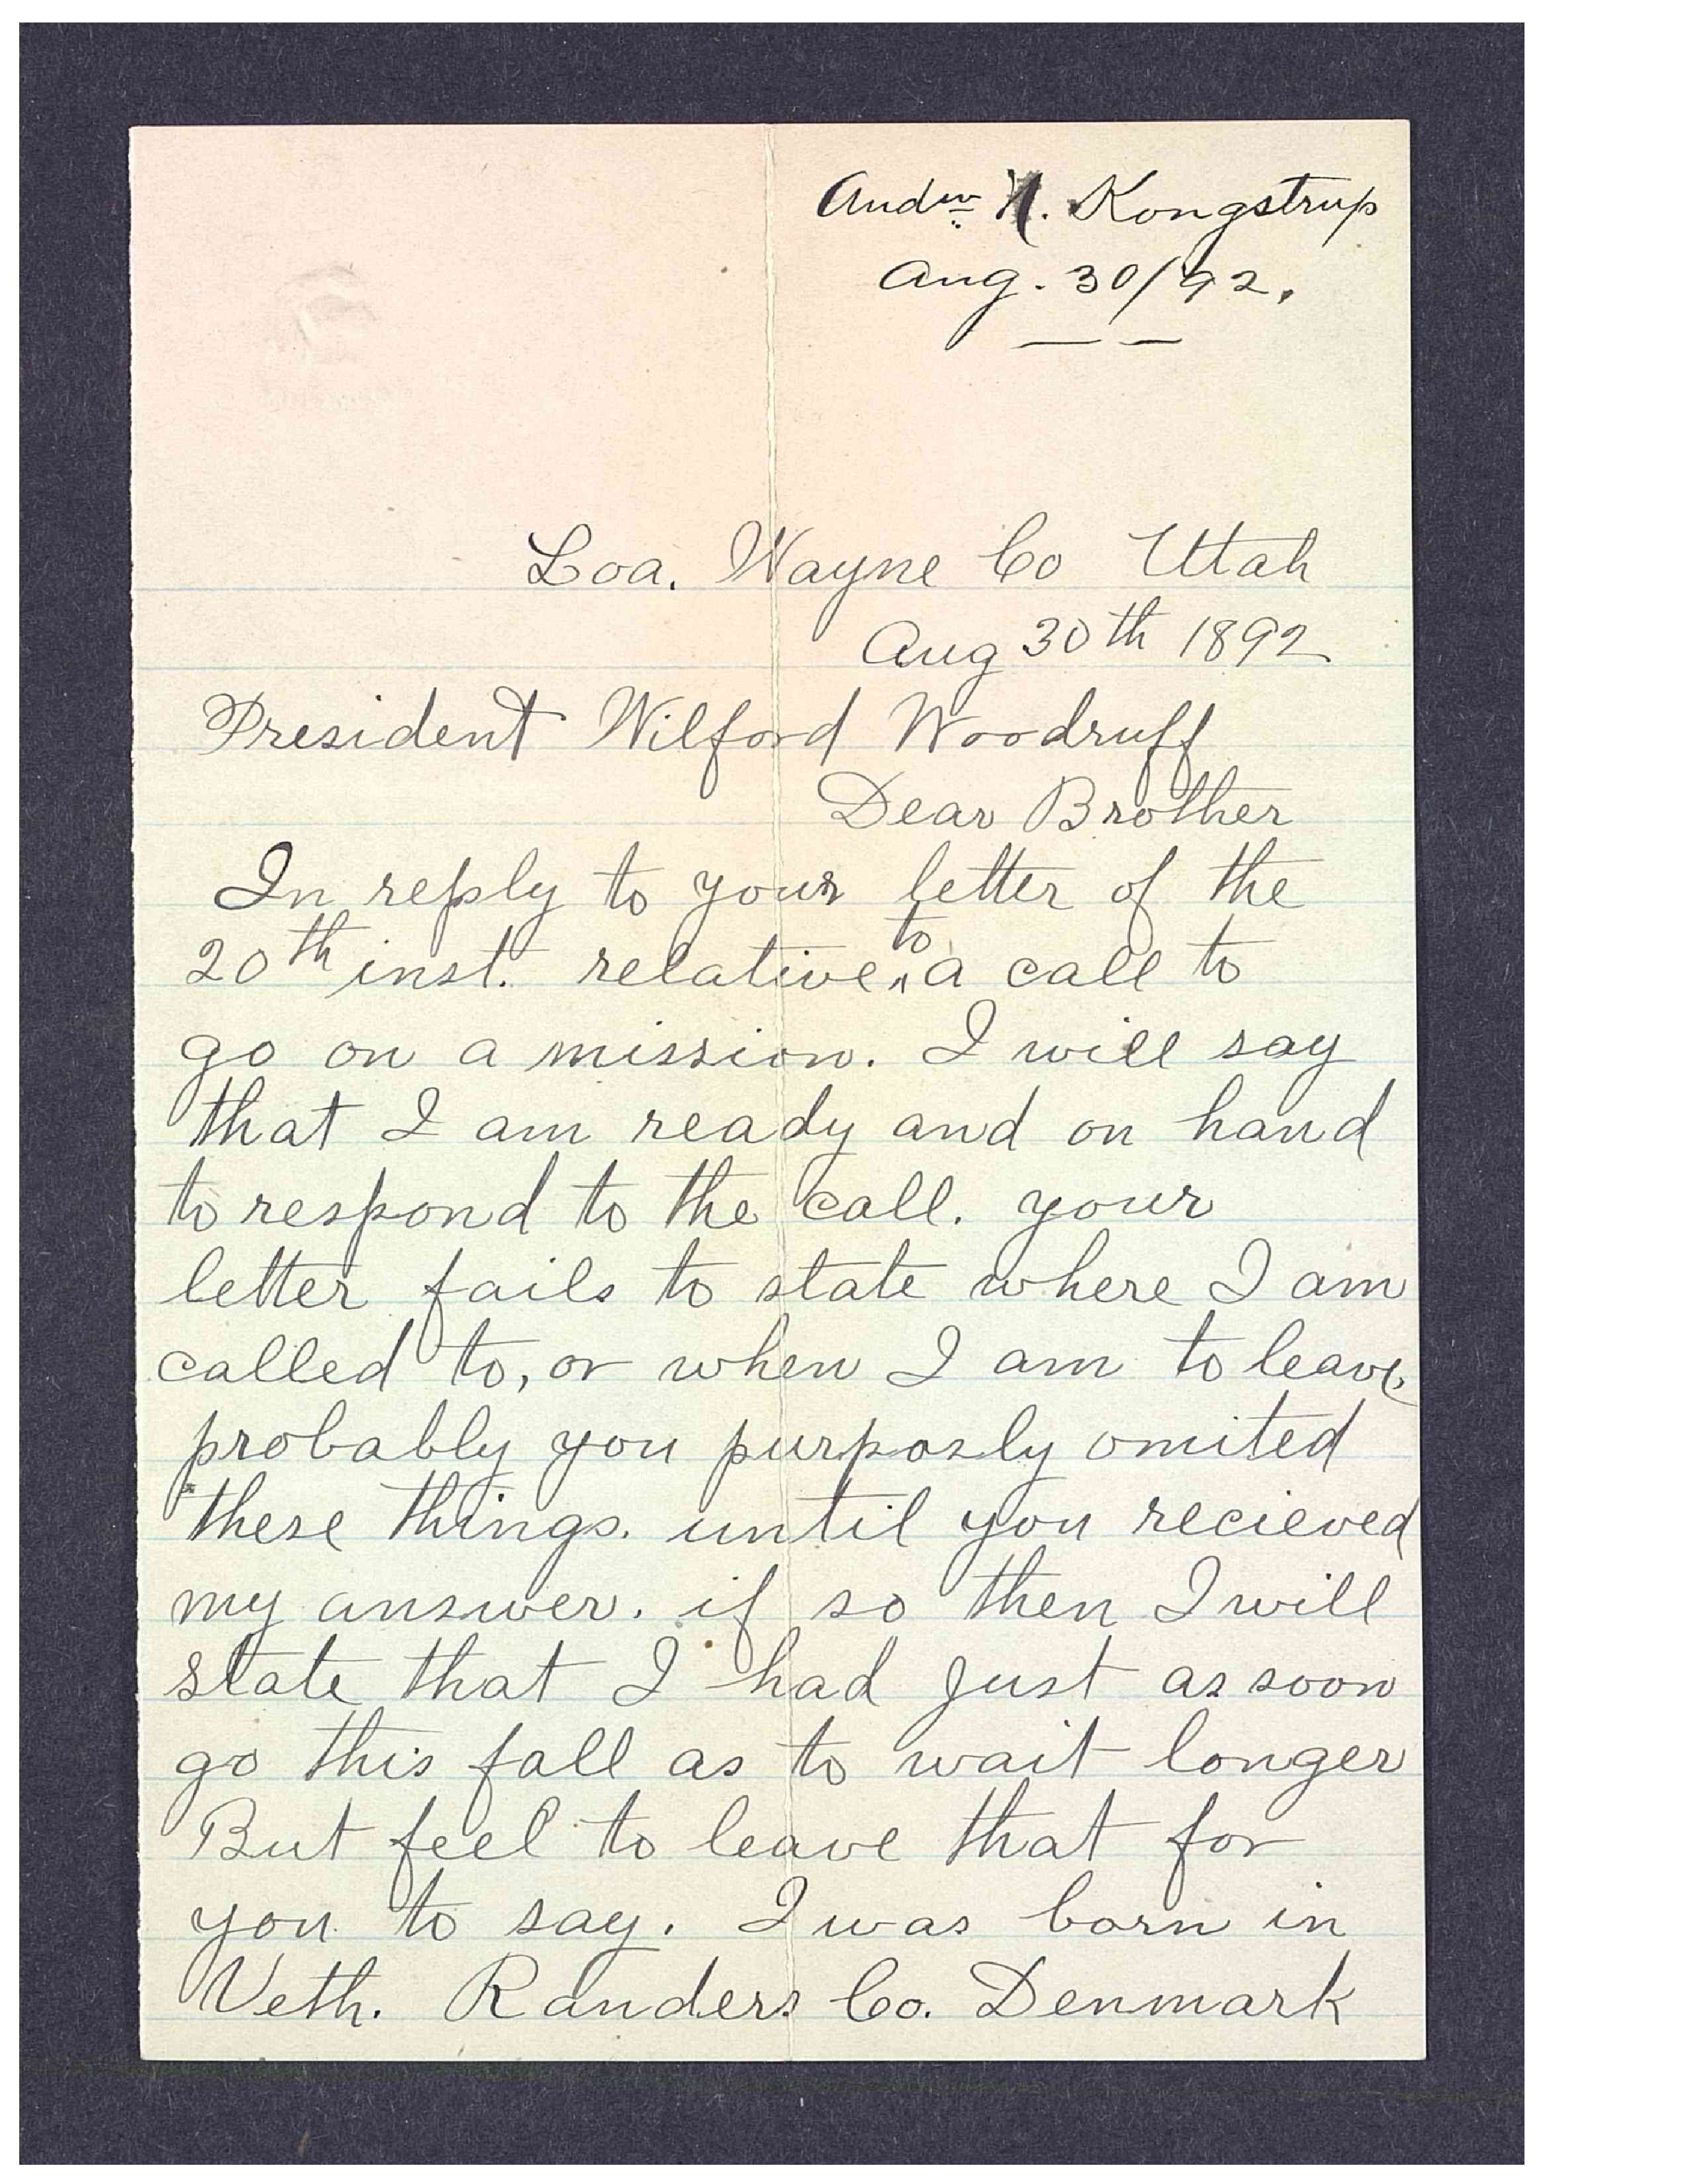 Andw N. Kongstrup
Aug. 30/92.
Loa. Wayne Co Utah
Aug 30th 1892
President Wilford Woodruff
Dear Brother
In reply to your letter of the
20th inst. relative to a call to
go on a mission. I will say
that I am ready and on hand
to respond to the call. your
letter fails to state where I am
called to, or when I am to leave,
probably you purposly omited
these things. until you recieved
my answer. if so then I will
state that I had just as soon
go this fall as to wait longer
But feel to leave that for
you to say. I was born in
Veth. Randers Co. Denmark